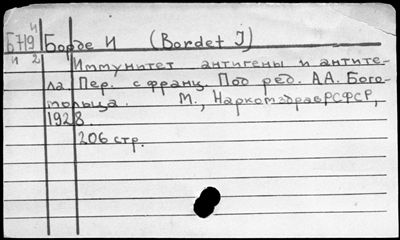 Б719 Борде И (Bordet J)
Иммунитет антигены и антите-
ла. Пер. с франц. Под ред. А.А. Бого-
мольца. М., НаркомздравРСФСР,
1928.
206 стр.